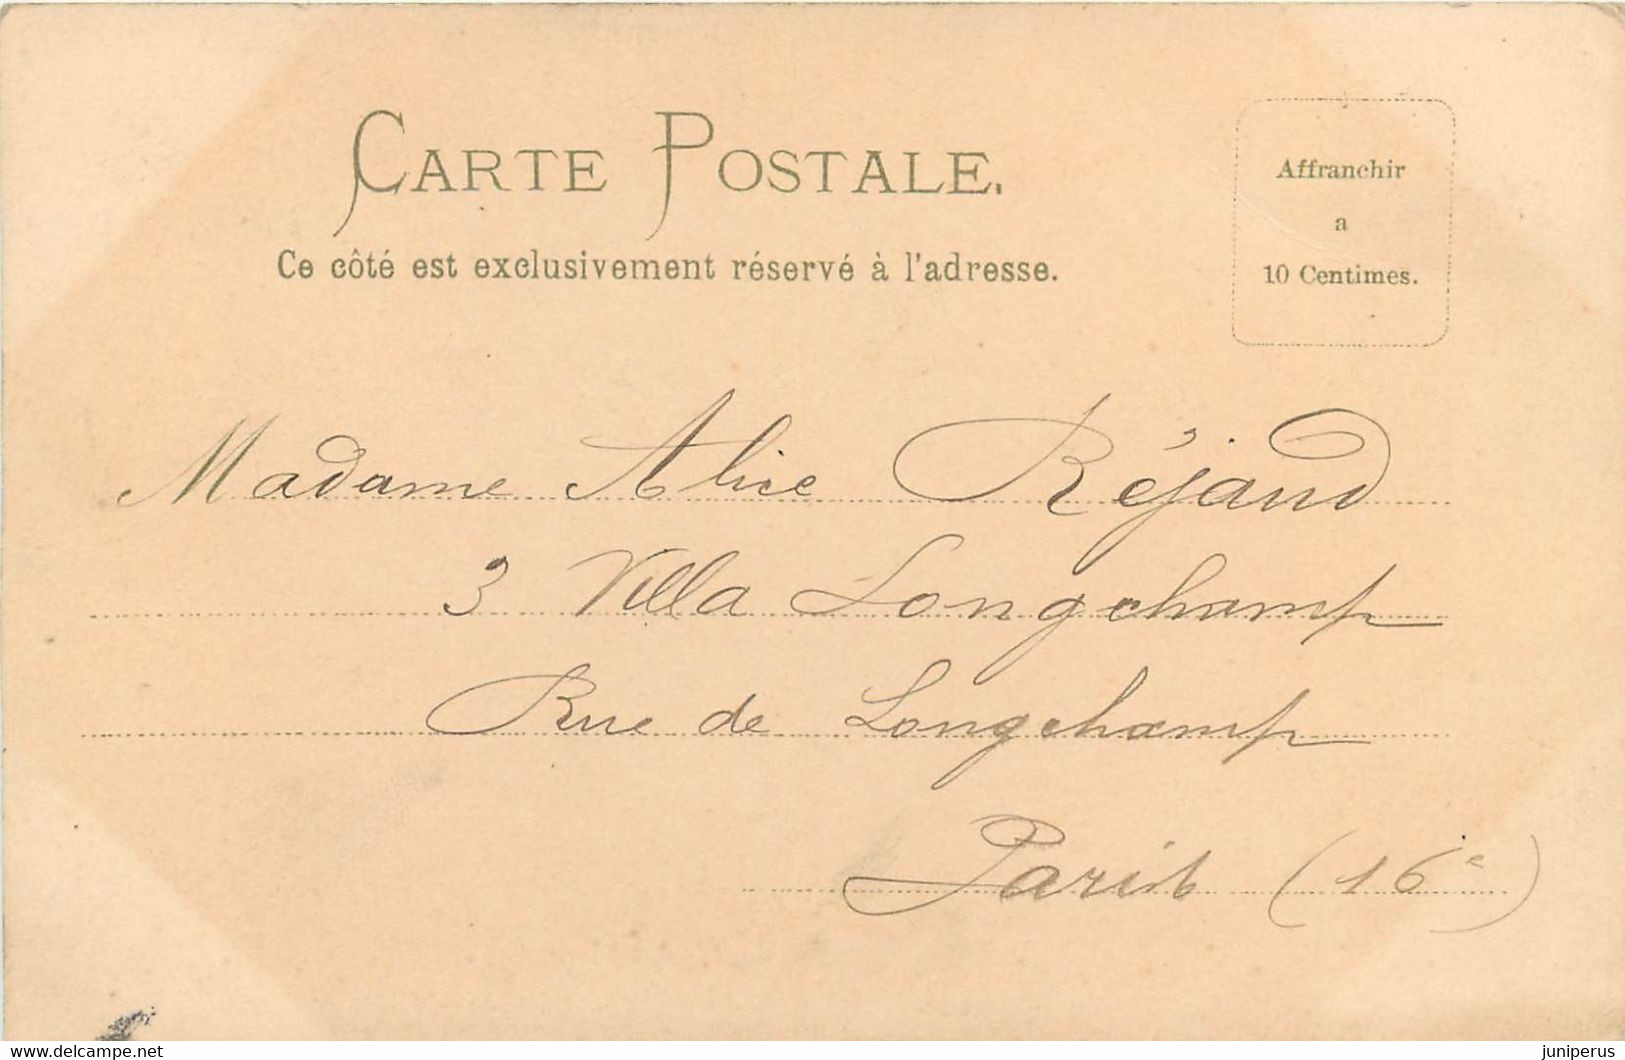 CARTE POSTALE.
Ce côté est exclusivement réservé à l'adresse.
Affranchir
a
10 Centimes.
Madame Alice Réjaud
3 Villa Longchamp
Rue de Longchamp
Paris (16e)
www.delcampe.net
juniperus